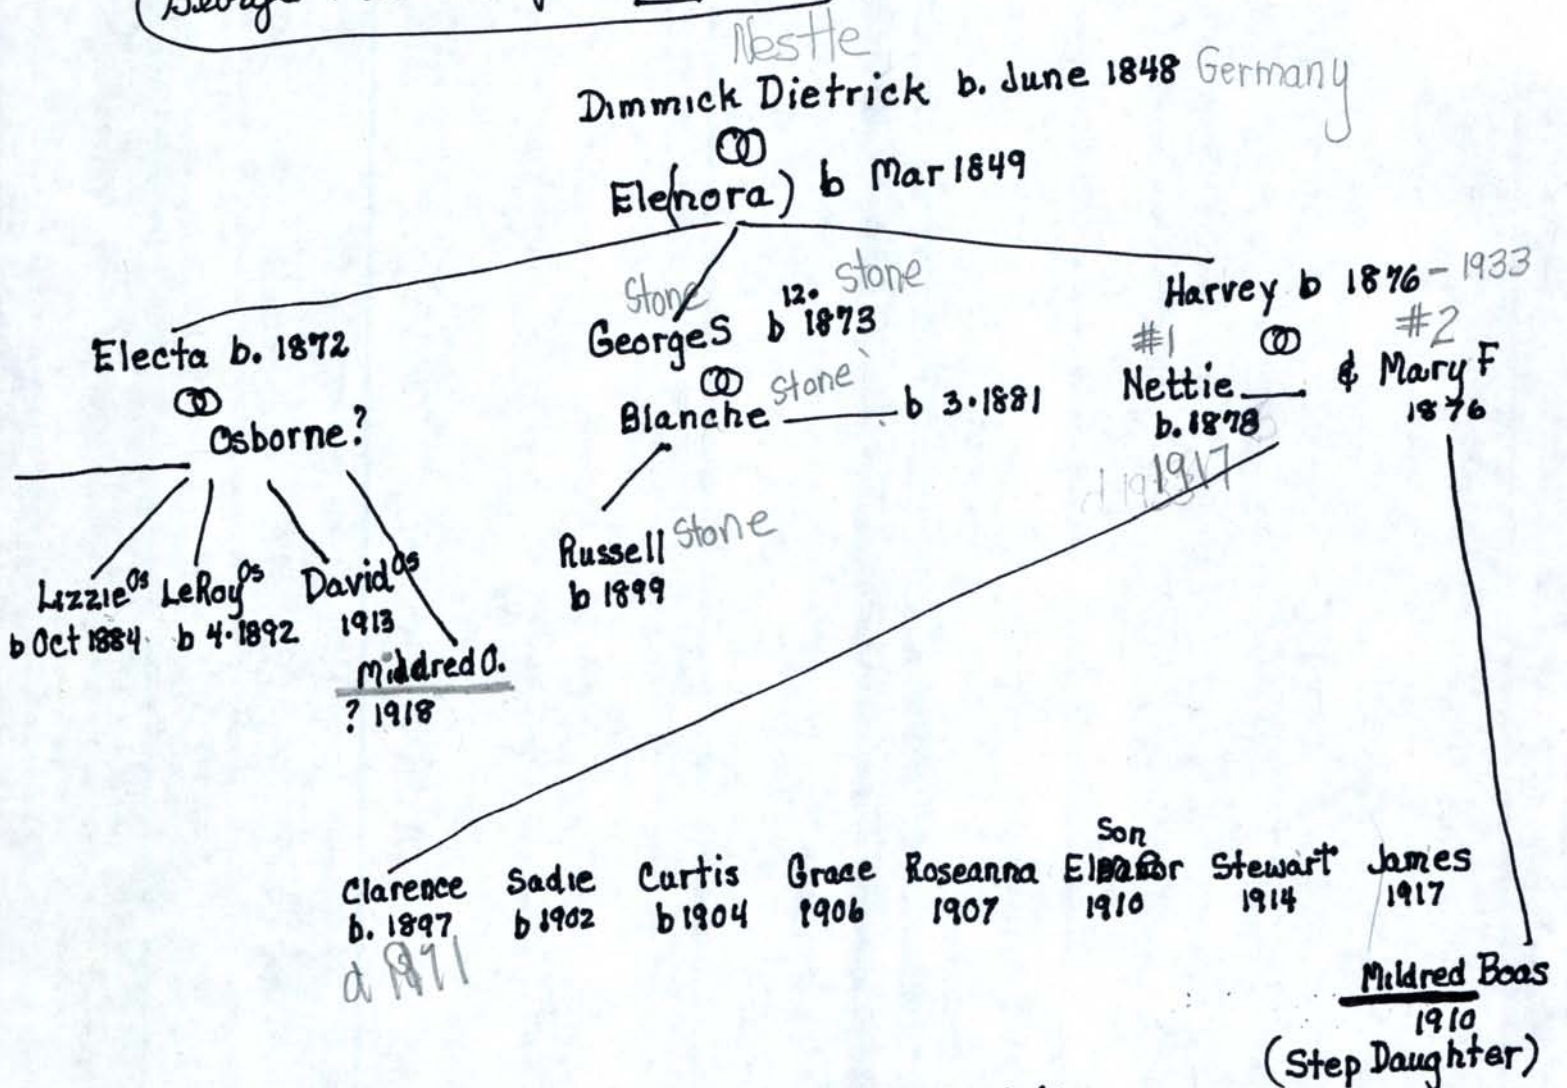 George
Nestle
Dimmick Dietrick b. June 1848 Germany
Ele(nora) b Mar 1849
Electa b. 1872
Osborne?
Lizzie Os
b Oct 1884
LeRoy Os
b 4.1892
David Os
1913
Mildred O.
? 1918
Stone
George S b 12. 1873 Stone
Blanche Stone b 3.1881
Russell Stone
b 1899
Harvey b 1876 - 1933
#1
Nettie
b. 1878
1917
#2
& Mary F
1876
Clarence
b. 1897
d
Sadie
b 1902
Curtis
b 1904
Grace
1906
Roseanna
1907
Son
1910
Stewart
1914
James
1917
Mildred Boas
1910
(Step Daughter)